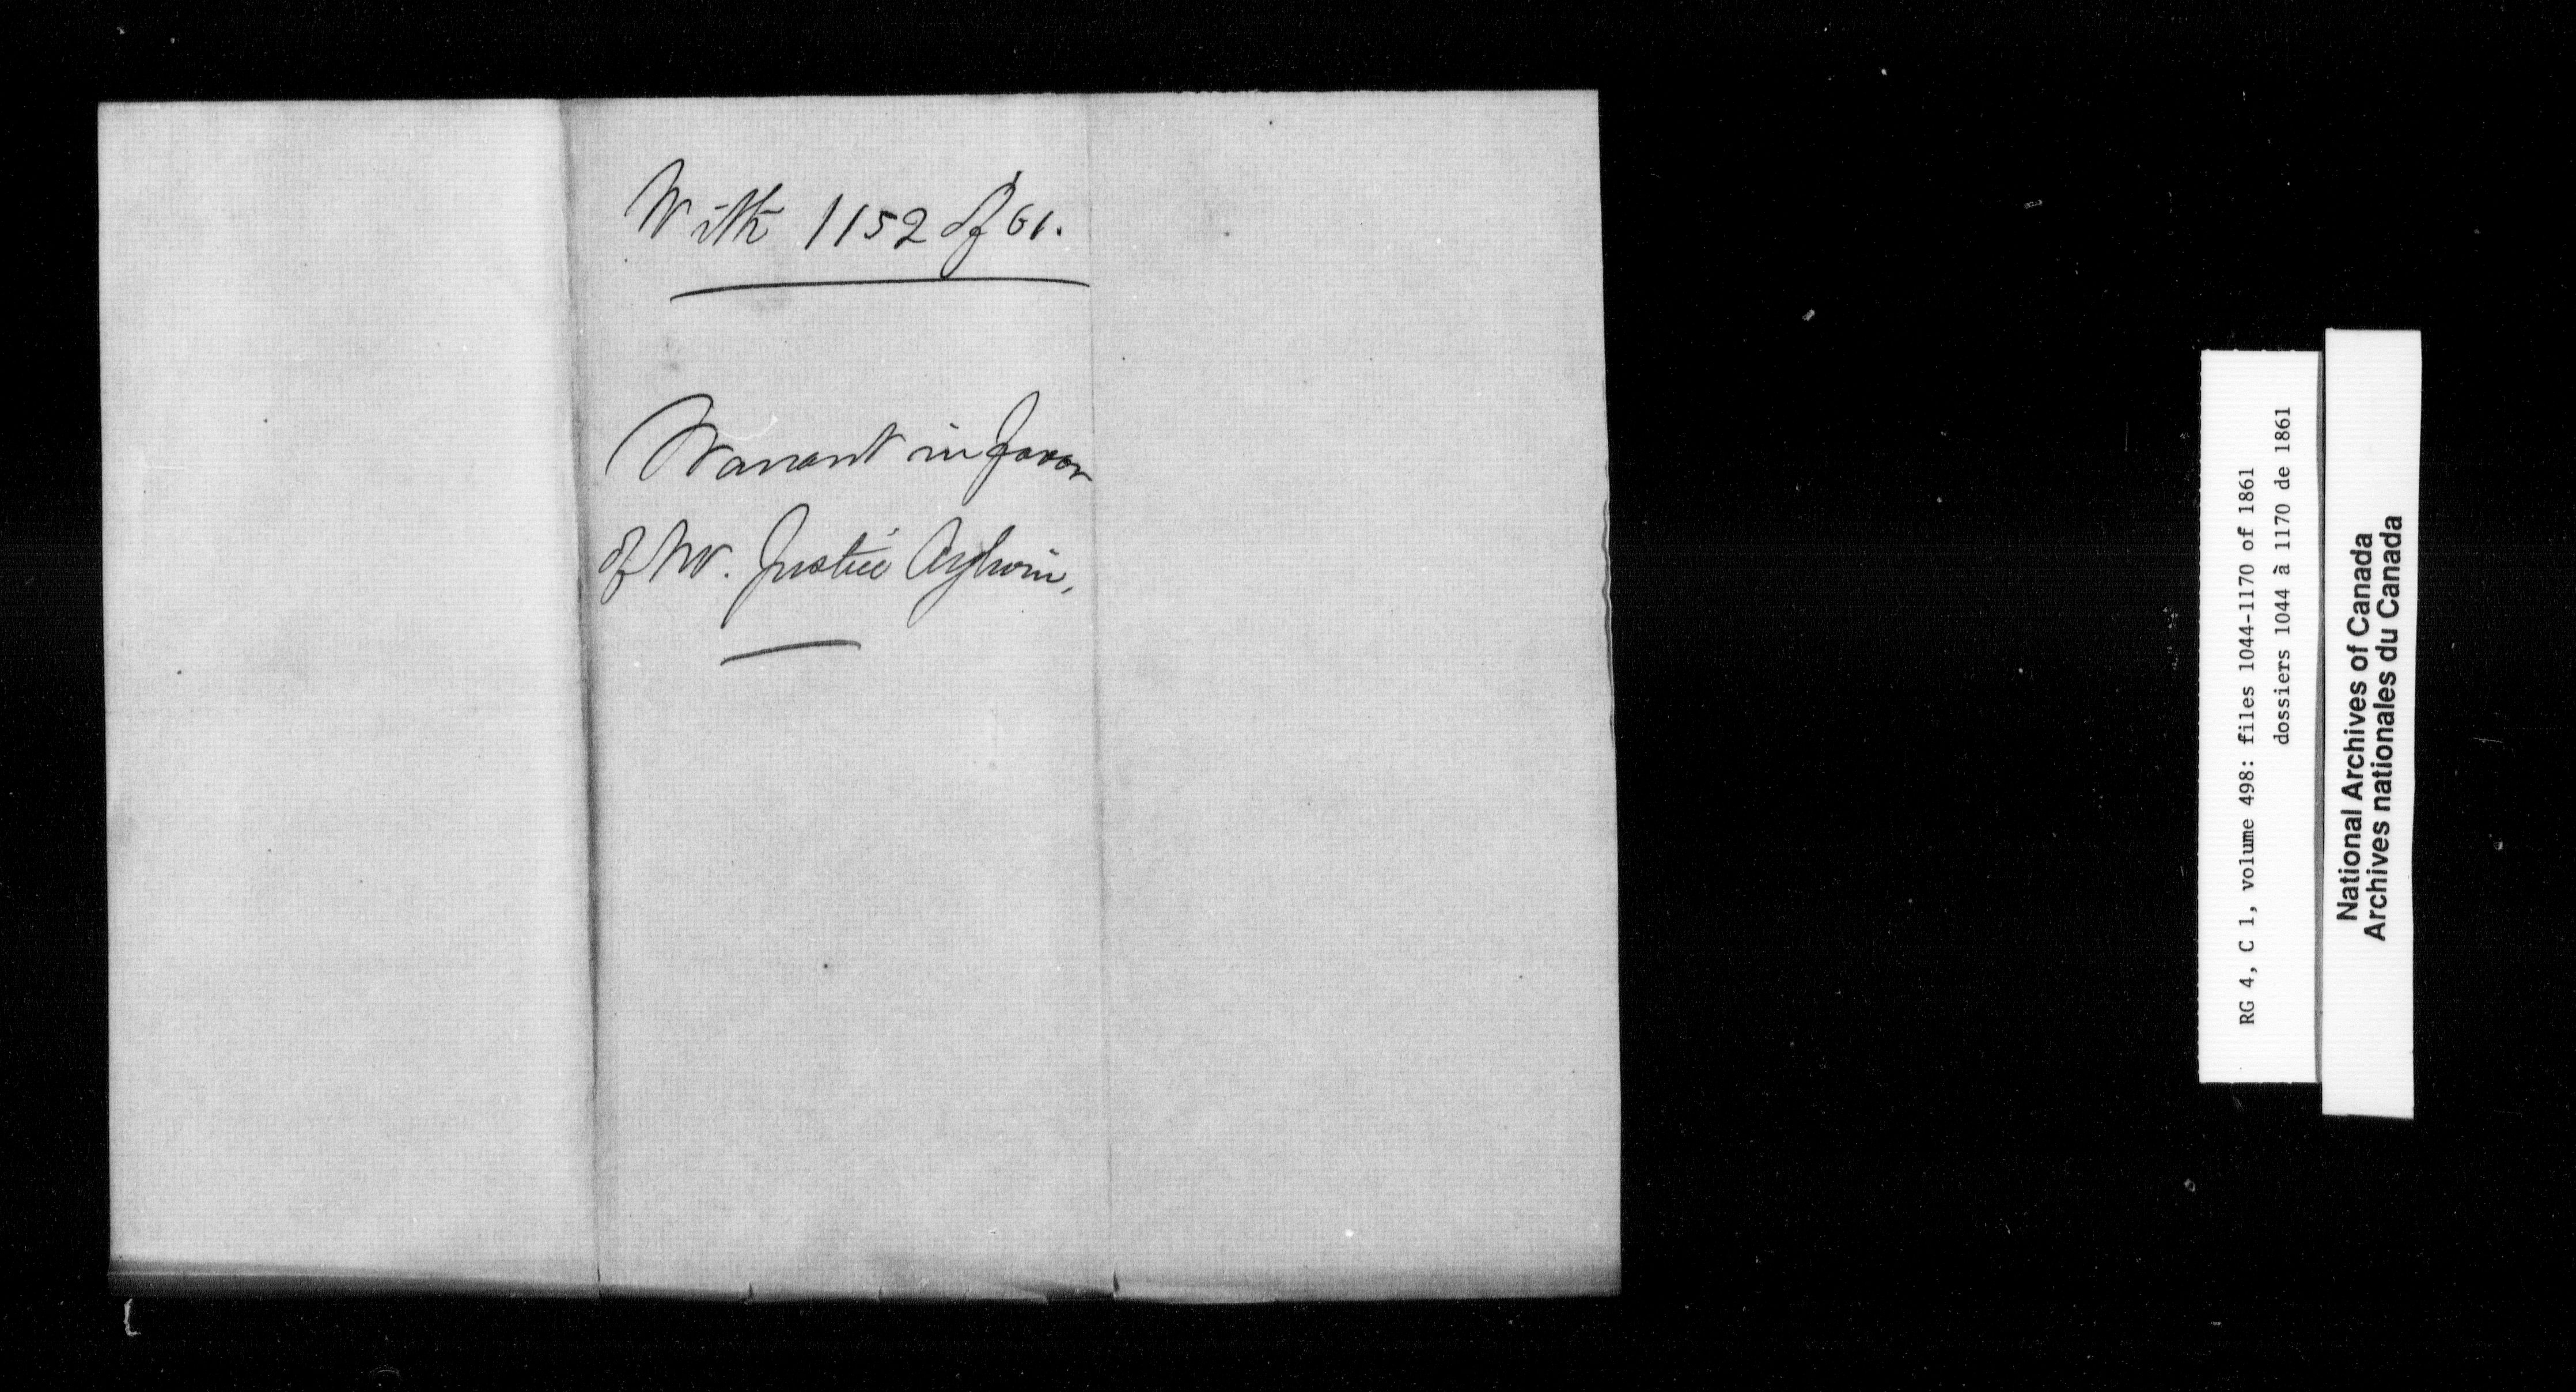 With 1152 of 61.
Warrant in favor
of Mr. Justice Aylwin,
RG 4, C 1, volume 498: files 1044-1170 of 1861
dossiers 1044 à 1170 de 1861
National Archives of Canada
Archives nationales du Canada